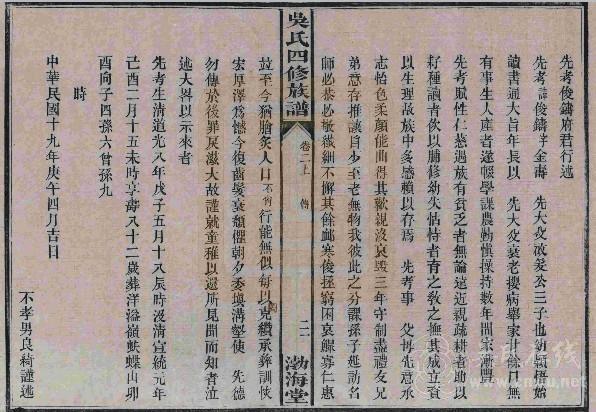 先考俊鑄府君行述
先考諱俊鑄字金壽 先大父啟髮公三子也幼穎悟始
讀書通大旨年長以 先大父衰老攖病舉家卄餘口無
有事生人產者遂輟學課農勤慎操持數年間家漸豐
先考賦性仁慈遇族有貧乏者無論遠近親疏耕者助以
籽種讀者佽以脯修幼失怙恃者育之教之撫其成立資
以生理故族中多感賴以存焉 先考事 父母先意承
志怡色柔顏能曲得其歡親沒哀毀三年守制盡禮友兄
弟意存推讓自少至老無物我彼此之分課孫子延訪名
師必恭必敬微細不懈其餘卹寒俊拯窮困哀鰥寡仁惠
竝至今猶膾炙人口不肖行能無似每以克纘承彝訓恢
宏厚澤爲憾今復齒髮衰頹懼朝夕委填溝壑使 先德
勿傳於後罪戾滋大故謹就童稚以還所見聞而知者泣
述大畧以示來者
先考生淸道光八年戊子五月十八辰時歿淸宣統元年
己酉二月十五未時享壽八十二歲葬洋溢嶺蛺蝶山卯
酉向子四孫六曾孫九
時
中華民國十九年庚午四月吉日
不孝男良綺謹述
吳氏四修族譜
卷二上 傳
二二
渤海堂